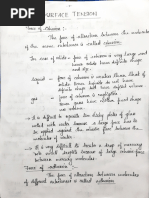 SURFACE TENSION
Force of Cohesion :
The force of attraction between the molecules
of the same substances is called cohesion.
In case of solids - force of cohesion is very large and
hence solids have definite shape
and size.
liquid - force of cohesion is smaller than
of solids hence liquids do not have
definite shape but have
gas - force of cohesion is negligible
have neither definite shape
It is difficult to separate two sticky plates of glass
wetted with water because a large force has to
be applied against the cohesive force between the
molecules of water.
It is very difficult to break a drop of mercury
into small droplets because of large cohesive force
between mercury molecules.
Force of adhesion :
The force of attraction between molecules
of different substances is called adhesion.